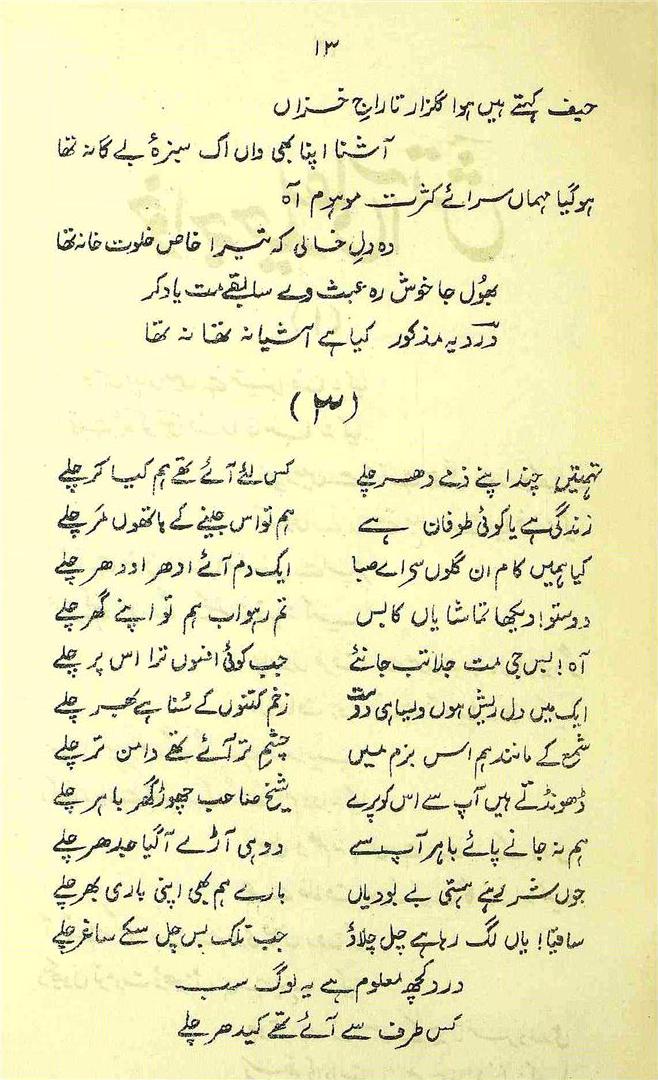 ۱۳
حیف کہتے ہیں ہوا گلزار تاراجِ خزاں
آشنا اپنا بھی واں اک سبزۂ بے گانہ تھا
ہوگیا مہماں سرائے کثرت موہوم آہ
وہ دلِ خالی کہ تیرا خاص خلوت خانہ تھا
بھول جا خوش رہ عبث وے سابقے مت یاد کر
دردؔ یہ مذکور کیا ہے آشیانہ تھا نہ تھا
(۳)
تہمتیں چند اپنے ذمے دھر چلے کس لئے آئے تھے ہم کیا کر چلے
زندگی ہے یا کوئی طوفان ہے ہم تو اس جینے کے ہاتھوں مر چلے
کیا ہمیں کام ان گلوں سے اے صبا ایک دم آئے ادھر اودھر چلے
دوستو! دیکھا تماشا یاں کا بس تم رہو اب ہم تو اپنے گھر چلے
آہ! بس جی مت جلا تب جانئے جب کوئی افسوں ترا اس پر چلے
ایک میں دل ریش ہوں ویسا ہی دوست زخم کتنوں کے سُنا ہے بھر چلے
شمع کے مانند ہم اس بزم میں چشمِ تر آئے تھے دامن تر چلے
ڈھونڈتے ہیں آپ سے اس کو پرے شیخ صاحب چھوڑ گھر باہر چلے
ہم نہ جانے پائے باہر آپ سے دوہی آڑے آگیا جدھر چلے
جوں شرر ہے ہستی بے بود یاں بارے ہم بھی اپنی باری بھر چلے
ساقیا! یاں لگ رہا ہے چل چلاؤ جب تلک بس چل سکے ساغر چلے
درد کچھ معلوم ہے یہ لوگ سب
کس طرف سے آئے تھے کیدھر چلے